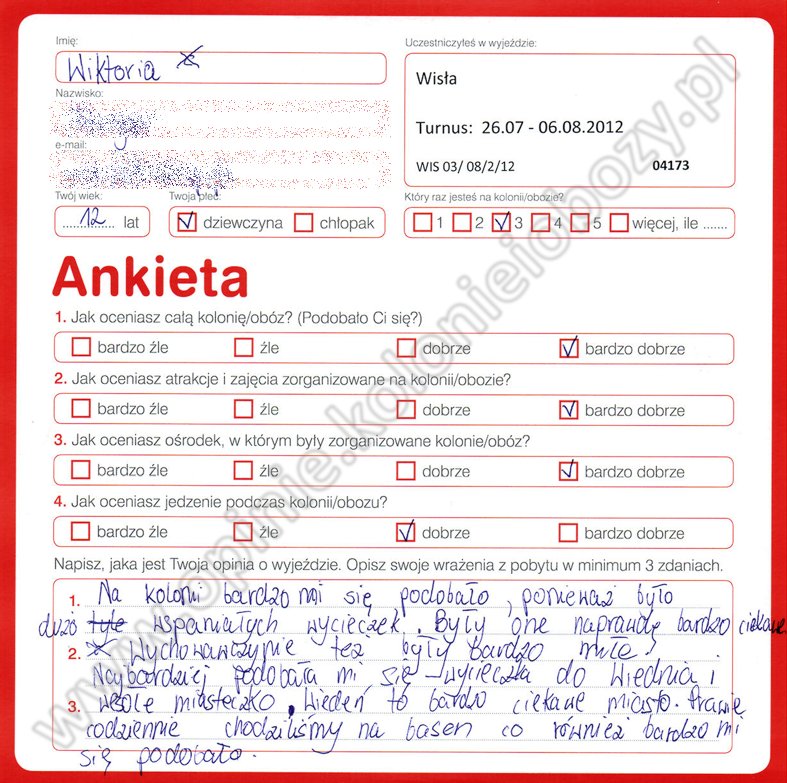 Imię:
Wiktoria
Uczestniczyłeś w wyjeździe:
Wisła
Turnus: 26.07 - 06.08.2012
WIS 03/ 08/2/12 04173
Nazwisko:
e-mail:
Twój wiek:
12 lat
Twoja płeć:
dziewczyna chłopak
Który raz jesteś na kolonii/obozie?
1 2 3 4 5 więcej, ile .......
Ankieta
1. Jak oceniasz całą kolonię/obóz? (Podobało Ci się?)
bardzo źle źle dobrze bardzo dobrze
2. Jak oceniasz atrakcje i zajęcia zorganizowane na kolonii/obozie?
bardzo źle źle dobrze bardzo dobrze
3. Jak oceniasz ośrodek, w którym były zorganizowane kolonie/obóz?
bardzo źle źle dobrze bardzo dobrze
4. Jak oceniasz jedzenie podczas kolonii/obozu?
bardzo źle źle dobrze bardzo dobrze
Napisz, jaka jest Twoja opinia o wyjeździe. Opisz swoje wrażenia z pobytu w minimum 3 zdaniach.
1. Na kolonii bardzo mi się podobało, ponieważ było
dużo tyle wspaniałych wycieczek. Były one naprawdę bardzo ciekawe.
2. Wychowawczynie też były bardzo miłe.
Najbardziej podobała mi się wycieczka do Wiednia i
3. wesołe miasteczko. Wiedeń to bardzo ciekawe miasto. Prawie
codziennie chodziliśmy na basen co również bardzo mi
się podobało.
www.opinie.kolonieiobozy.pl